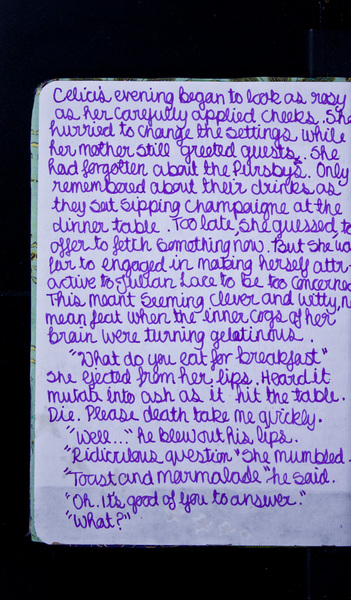 Celici's evening began to look as rosy
as her carefully applied cheeks. She
hurried to change the settings while
her mother still greeted guests. She
had forgotten about the Pursby's. Only
remembered about their drinks as
they sat sipping champaigne at the
dinner table. Too late, she guessed to
offer to fetch something now. But she wa
far to engaged in making herself attr-
active to Julian Lace to be too concerne
This meant seeming clever and witty, n
mean feat when the inner cogs of her
brain were turning gelatinous.
"What do you eat for breakfast"
she ejected from her lips. Heard it
into ash as it hit the table.
Die. Please death take me quickly.
"Well..." he blew out his lips.
"Ridiculous question" she mumbled.
"Toast and marmalade" he said.
"Oh. It's good of you to answer."
"What?"